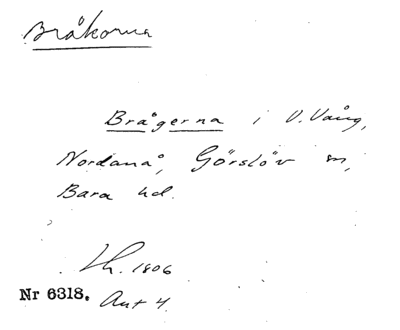 Bråkorna
Brågerna i V. Vång,
Nordanå, Görslöv sn,
Bara hd.
Lh. 1806
Nr 6318. Ant 4.